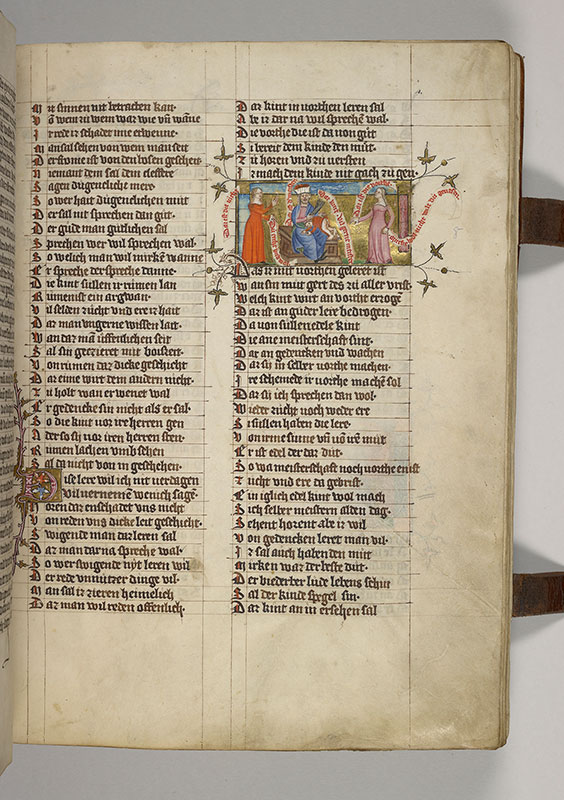 Mit sinnen nit betrachten kan.
Von wem zu wem war wie vñ wañe
Ir rede ir schader ime etwenne.
Man sal sehen von wem man seit
Der stonie ist von den bosen gescheit
Niemant dem sal dem
Sagen dügentlicht mere
So wer hait dügentlichen mut
Der sal nit sprechen dan gůt.
Der gůde man gůtlichen sal
Sprechen wer wil sprechen wal.
So welich man wil mirkē wanne
Er spreche der spreche danne.
Die kint sullen it rumen lan
Rumen ist ein argwan.
Vil selden zucht vnd ere it hait
Dar man vngerne wissen lait.
Wan dar mā uffentlichen seit
Sal sin gezieret mit
Von rumen dar dicke geschicht
Dar eime wirt dem andern nicht.
Zu holt wan er wenet wal
Er gedencke sin nicht als er sal.
So die kint vor ire herren gen
Ader so sij vor iren herren sten.
Rumen lachen vmb sehen
Sal da nicht von in geschehen.
Dise lere wil ich nit verdagen
Wil vernemē wen ich sagē.
Horen dar enschadet vns nicht
Von reden vns dicke leit geschicht.
Swigende man dar leren sal
Dar man dar na spreche wal.
So wer swigende nyt leren wil
Der rede vnnutzer dinge vil.
Man sal it zieren heimelich
Dar man wil reden offenlich.
Dar kint in vorthen leren sal
Abe it dar na wil sprechē wal.
Die vorthe die ist da von gůt
Si bereit dem kinde den můt.
Zu horen vnd zu versten
Ir mach dem kinde nit gach zu gen.
Das it mit vorthen geleret ist
Wan sin mut gert des zu aller vrist.
Welch kint wirt an vorht erzogē
Dar ist an guder lere bedrogen.
Da von sullen edele kint
Die ane meisterschaft sint.
Dar an gedencken vnd wachen
Dar sij in selber vorthe machen.
Ire schemede it vorthe machē sol
Dar sij ich sprechen dan wol.
Wieder zucht noch weder ere
Si sullen haben die lere.
Von irme sinne vñ vō ire můt
Er ist edel der dar důt.
So wa meisterschaft noch vorthe enist
Zucht vnd ere da gebrist.
Ein iglich edel kint wol mach
Sich selber meistern alden dag.
Sehent horent abe it wil
Von gedencken leret man vil.
It sal auch haben den mut
Mirken war der beste dut.
Der biederber lüde lebens schin
Sal der kinde spegel sin.
Dar kint an in ersehen sal